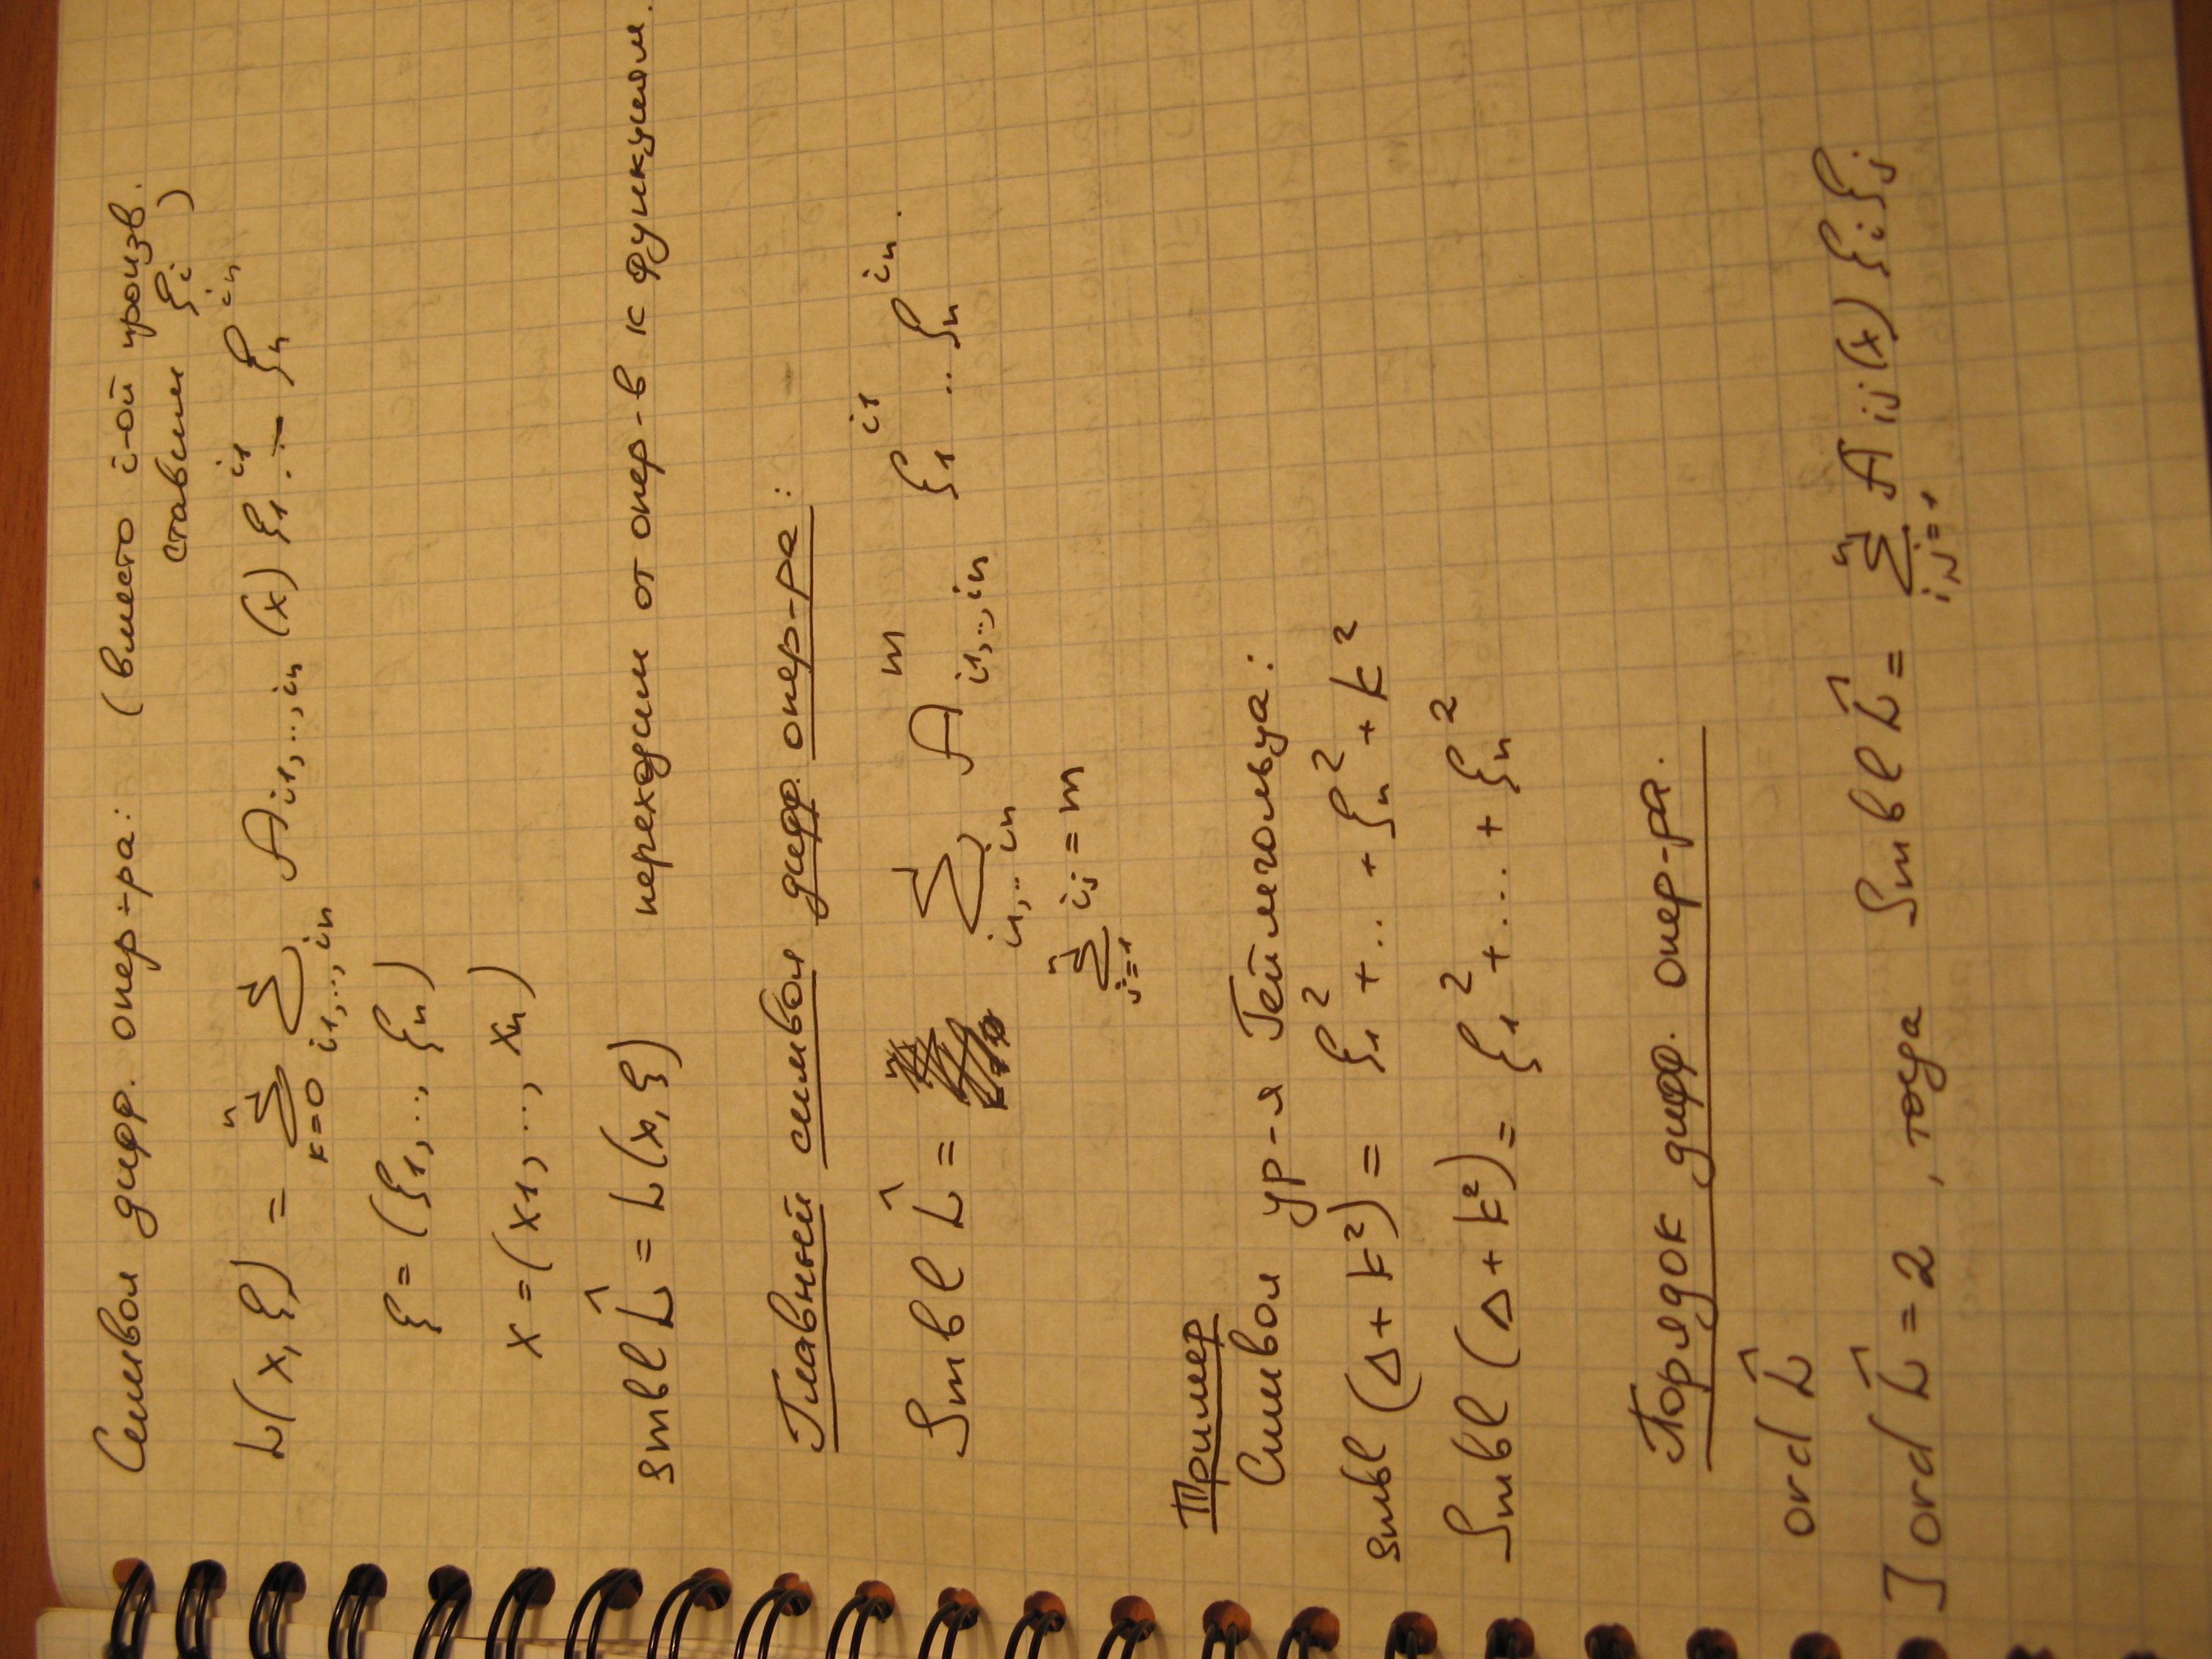 Символ дифф. опер-ра: (вместо i-ой произв.
ставим ξ_i)
L(x, ξ) = Σ_{k=0}^{n} Σ_{i1,...,in} A_{i1,...,in} (x) ξ_1^{i1} ... ξ_n^{in}
ξ = (ξ_1, ..., ξ_n)
x = (x_1, ..., x_n)
smbl L̂ = L(x, ξ) переходим от опер-в к функциям.
Главный символ дифф. опер-ра:
Smbl L̂ = Σ_{i1,...in} A^m_{i1,...,in} ξ_1^{i1} ... ξ_n^{in}.
Σ_{j=1}^{n} i_j = m
Пример
Символ ур-я Гельмгольца:
smbl (Δ + k²) = ξ_1² + ... + ξ_n² + k²
Smbl (Δ + k²) = ξ_1² + ... + ξ_n²
Порядок дифф. опер-ра.
ord L̂
] ord L̂ = 2, тогда Smbl L̂ = Σ_{i,j=1}^{n} A_{ij}(x) ξ_i ξ_j